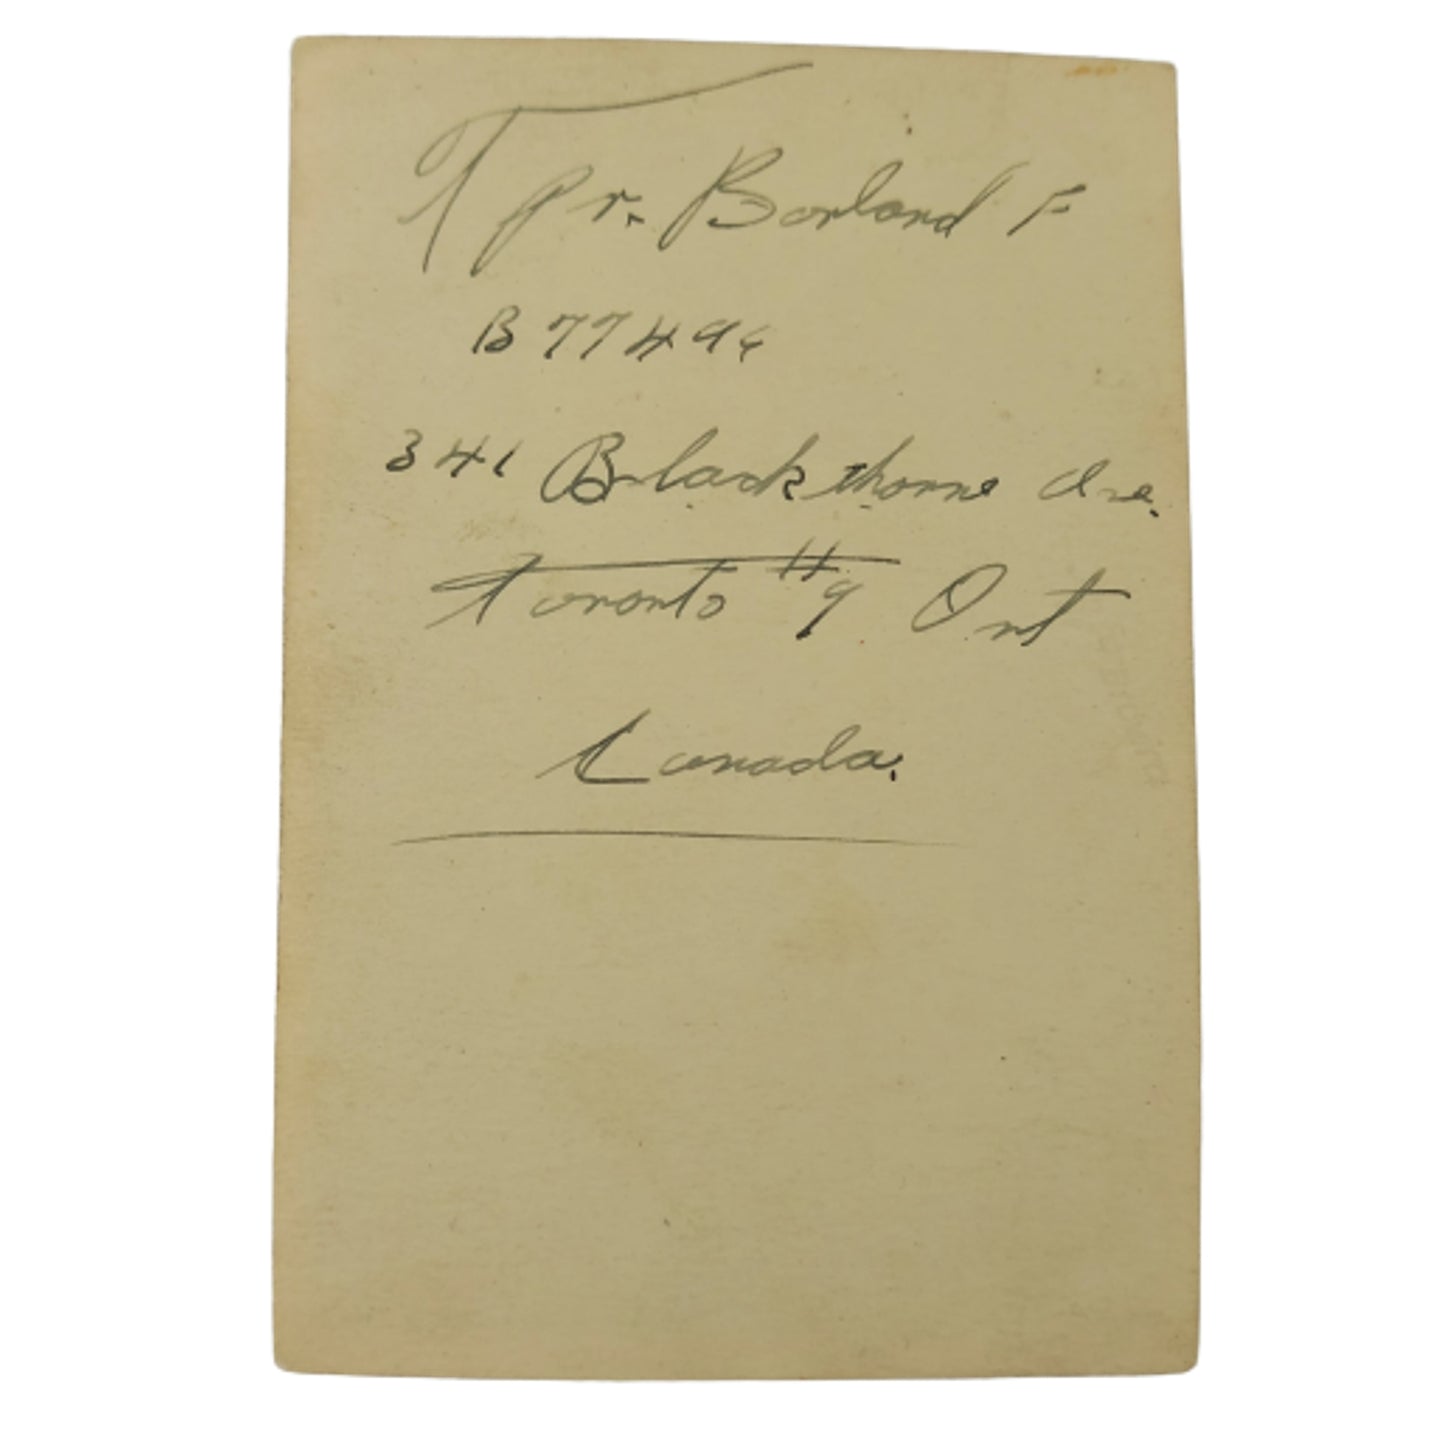 Tpr. Borland F
B 77496
341 Blackthorne Ave.
Toronto #9 Ont
Canada.